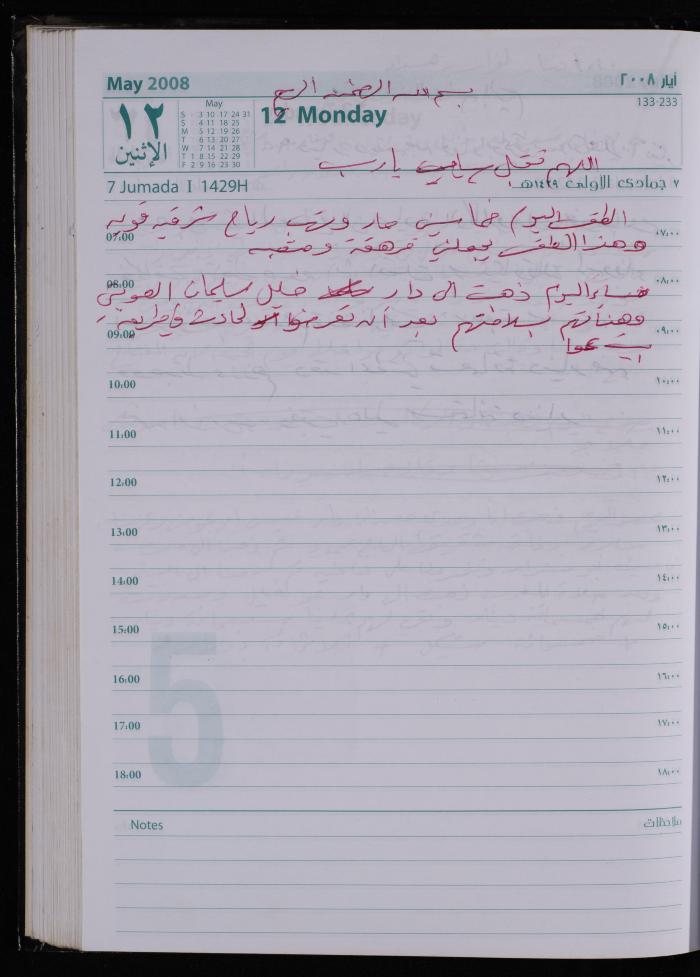 May 2008
أيار ٢٠٠٨
بسم الله الرحمن الرح
133-233
١٢
الإثنين
May
S 3 10 17 24 31
S 4 11 18 25
M 5 12 19 26
T 6 13 20 27
W 7 14 21 28
T 1 8 15 22 29
F 2 9 16 23 30
12 Monday
اللهم تقبل صيامي يا رب
7 Jumada I 1429H
٧ جمادى الاولى ١٤٢٩هـ
الطقس اليوم خماسيني حار وتهب رياح شرقيه قويه
07:00 ٠٧:٠٠
وهذا الطقس يجعلني مرهقة ومتعبه
08:00 ٠٨:٠٠
مساء اليوم ذهبت الى دار خليل سليمان
وهنأتهم بسلامتهم بعد أن تعرضوا لحادث في طريقهم
09:00 ٠٩:٠٠
10:00 ١٠:٠٠
11:00 ١١:٠٠
12:00 ١٢:٠٠
13:00 ١٣:٠٠
14:00 ١٤:٠٠
15:00 ١٥:٠٠
16:00 ١٦:٠٠
17:00 ١٧:٠٠
18:00 ١٨:٠٠
5
Notes
ملاحظات